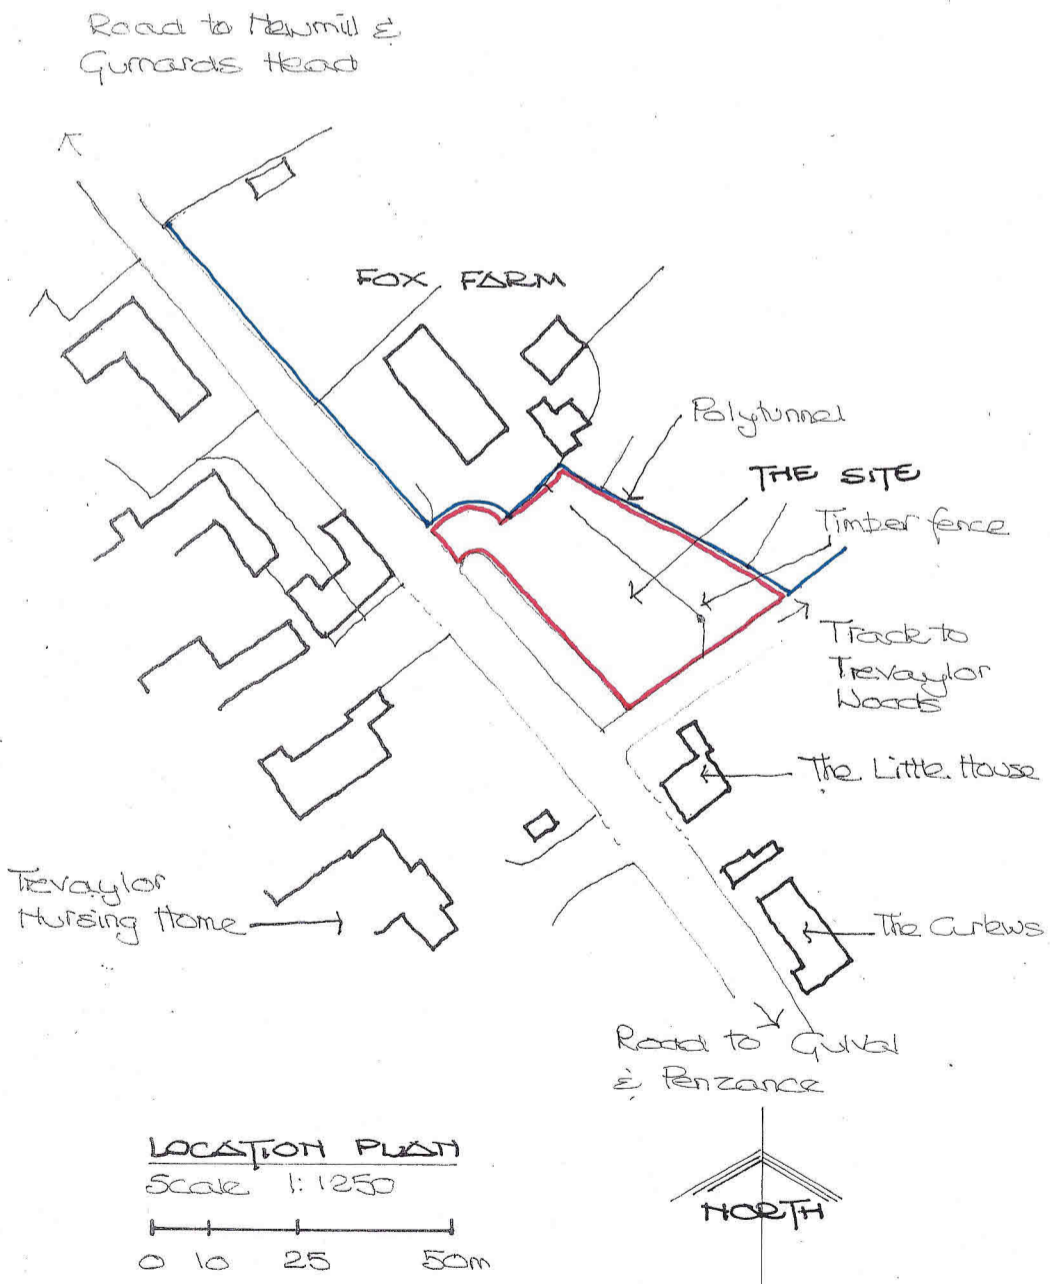 Road to Newmill &
Gurnards Head
FOX FARM
Polytunnel
THE SITE
Timber fence
Track to
Trevaylor
Woods
The Little House
Trevaylor
Nursing Home
The Curlews
Road to Gulval
& Penzance
LOCATION PLAN
Scale 1:1250
0 10 25 50m
NORTH